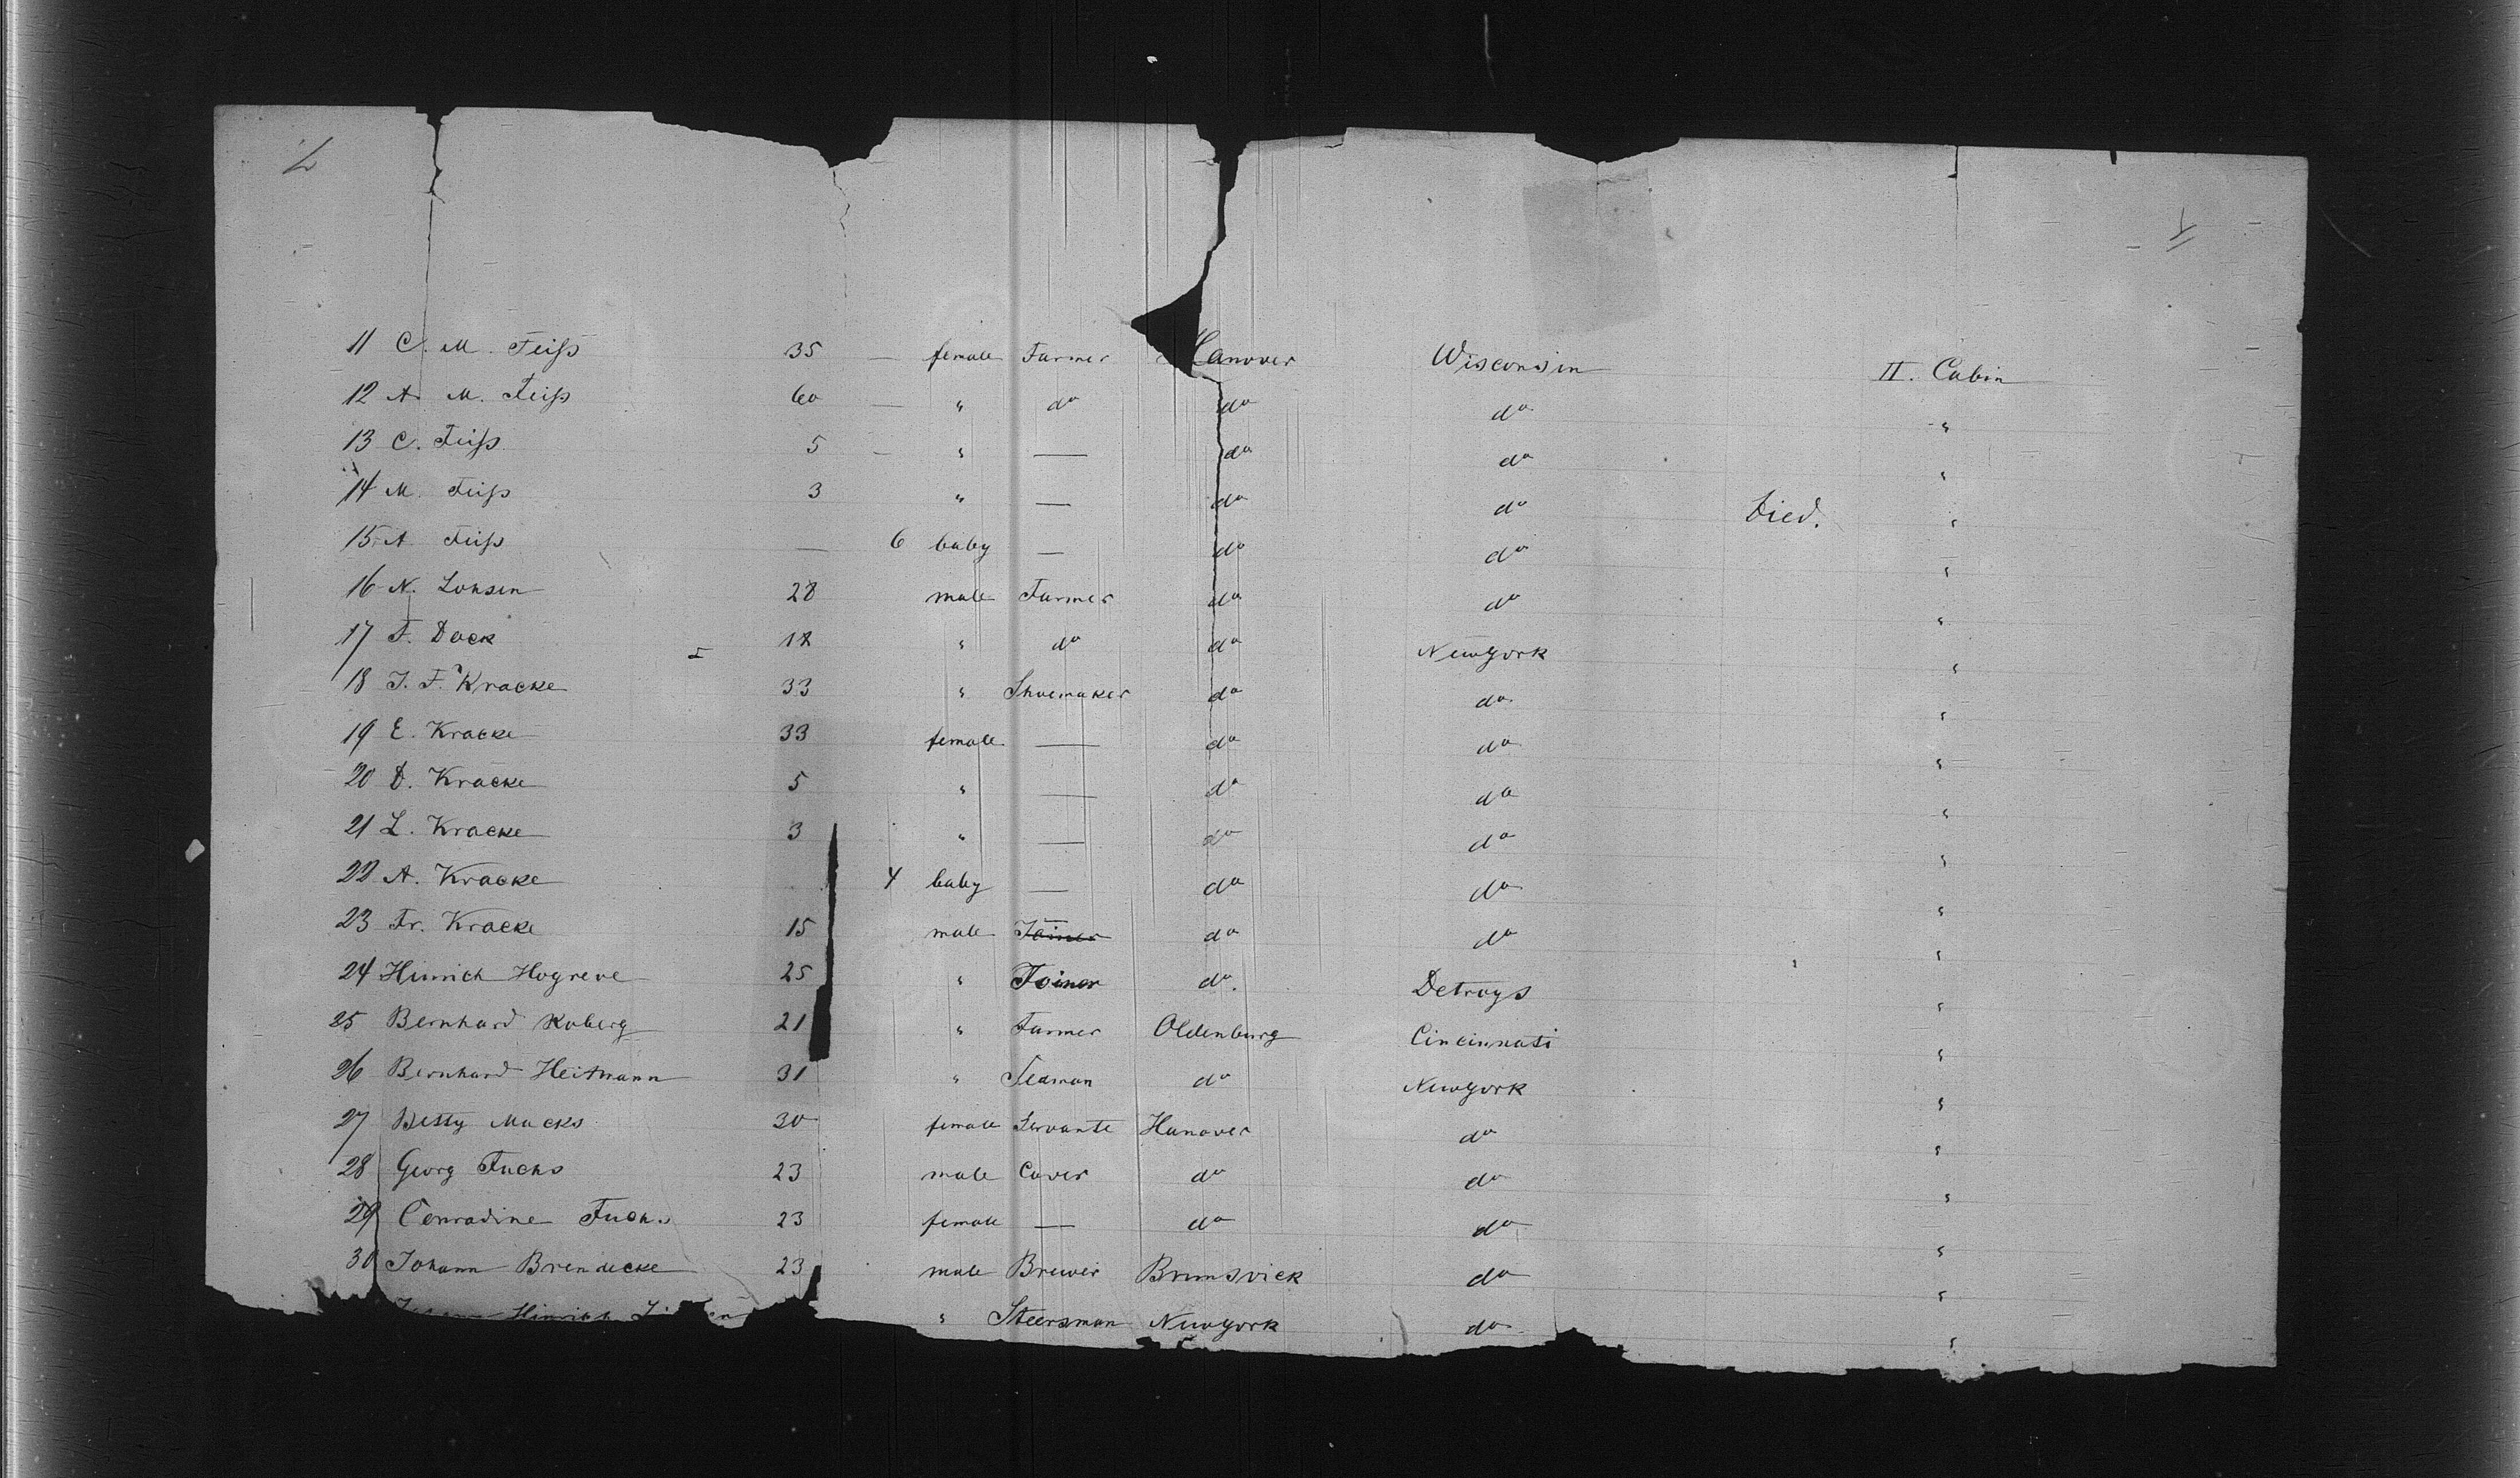 11 C. M. Feiſs 35 — female Farmer Hanover Wisconsin II. Cabin
12 A. M. Feiſs 60 — " do do do "
13 C. Feiſs 5 — " — do do "
14 M. Feiſs 3 " — do do Died. "
15 A. Feiſs — 6 baby — do do "
16 N. Lohsen 28 male Farmer do do "
17 F. Dock 18 " do do Newyork "
18 J. F. Kracke 33 " Shoemaker do do "
19 E. Kracke 33 female — do do "
20 D. Kracke 5 " — do do "
21 L. Kracke 3 " — do do "
22 A. Kracke 4 baby — do do "
23 Fr. Kracke 15 male do do "
24 Hinrich Hogreve 25 " Joiner do. Detroys "
25 Bernhard Koberg 21 " Farmer Oldenburg Cincinnati "
26 Bernhard Heitmann 31 " Seaman do Newyork "
27 Betty Macks 30 female Servante Hanover do "
28 Georg Fuchs 23 male Cover do do "
29 Conradine Fuchs 23 female — do do "
30 Johann Brendecke 23 male Brewer Brunsvick do "
Hinrich " Steersman Newyork do "